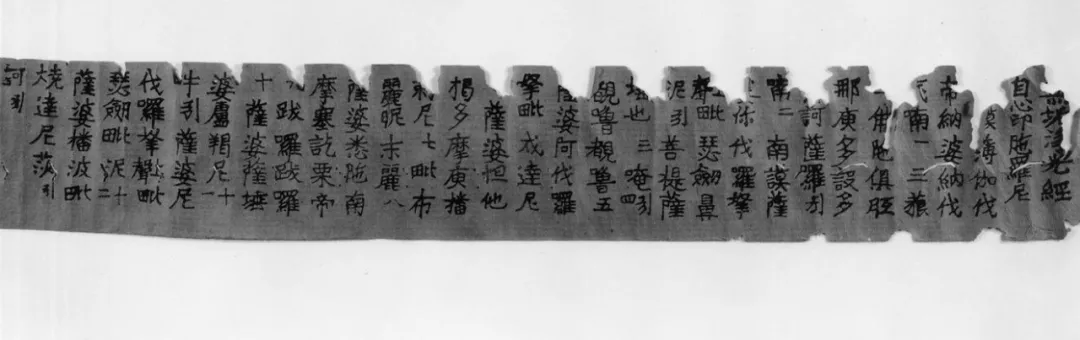 無垢淨光經
自心印陁羅尼
謨薄伽伐
帝納婆納伐
喃一三藐
佛陁俱胝
那庾多設多
訶薩羅引
喃二南謨薩
你伐羅拏
毗瑟劒鼻
泥引菩提薩
埵也三唵引四
覩嚕覩嚕五
薩婆阿伐羅
拏毗戍達尼
薩婆怛他
揭多摩庾播
尼七毗布
麗昵末麗八
薩婆悉陁南
摩塞訖栗帝
跋羅跋羅
十薩婆薩埵
婆盧羯尼十一
吽引薩婆尼
伐羅拏毗
瑟劒毗泥十二
薩婆播波毗
燒達尼莎引
訶引